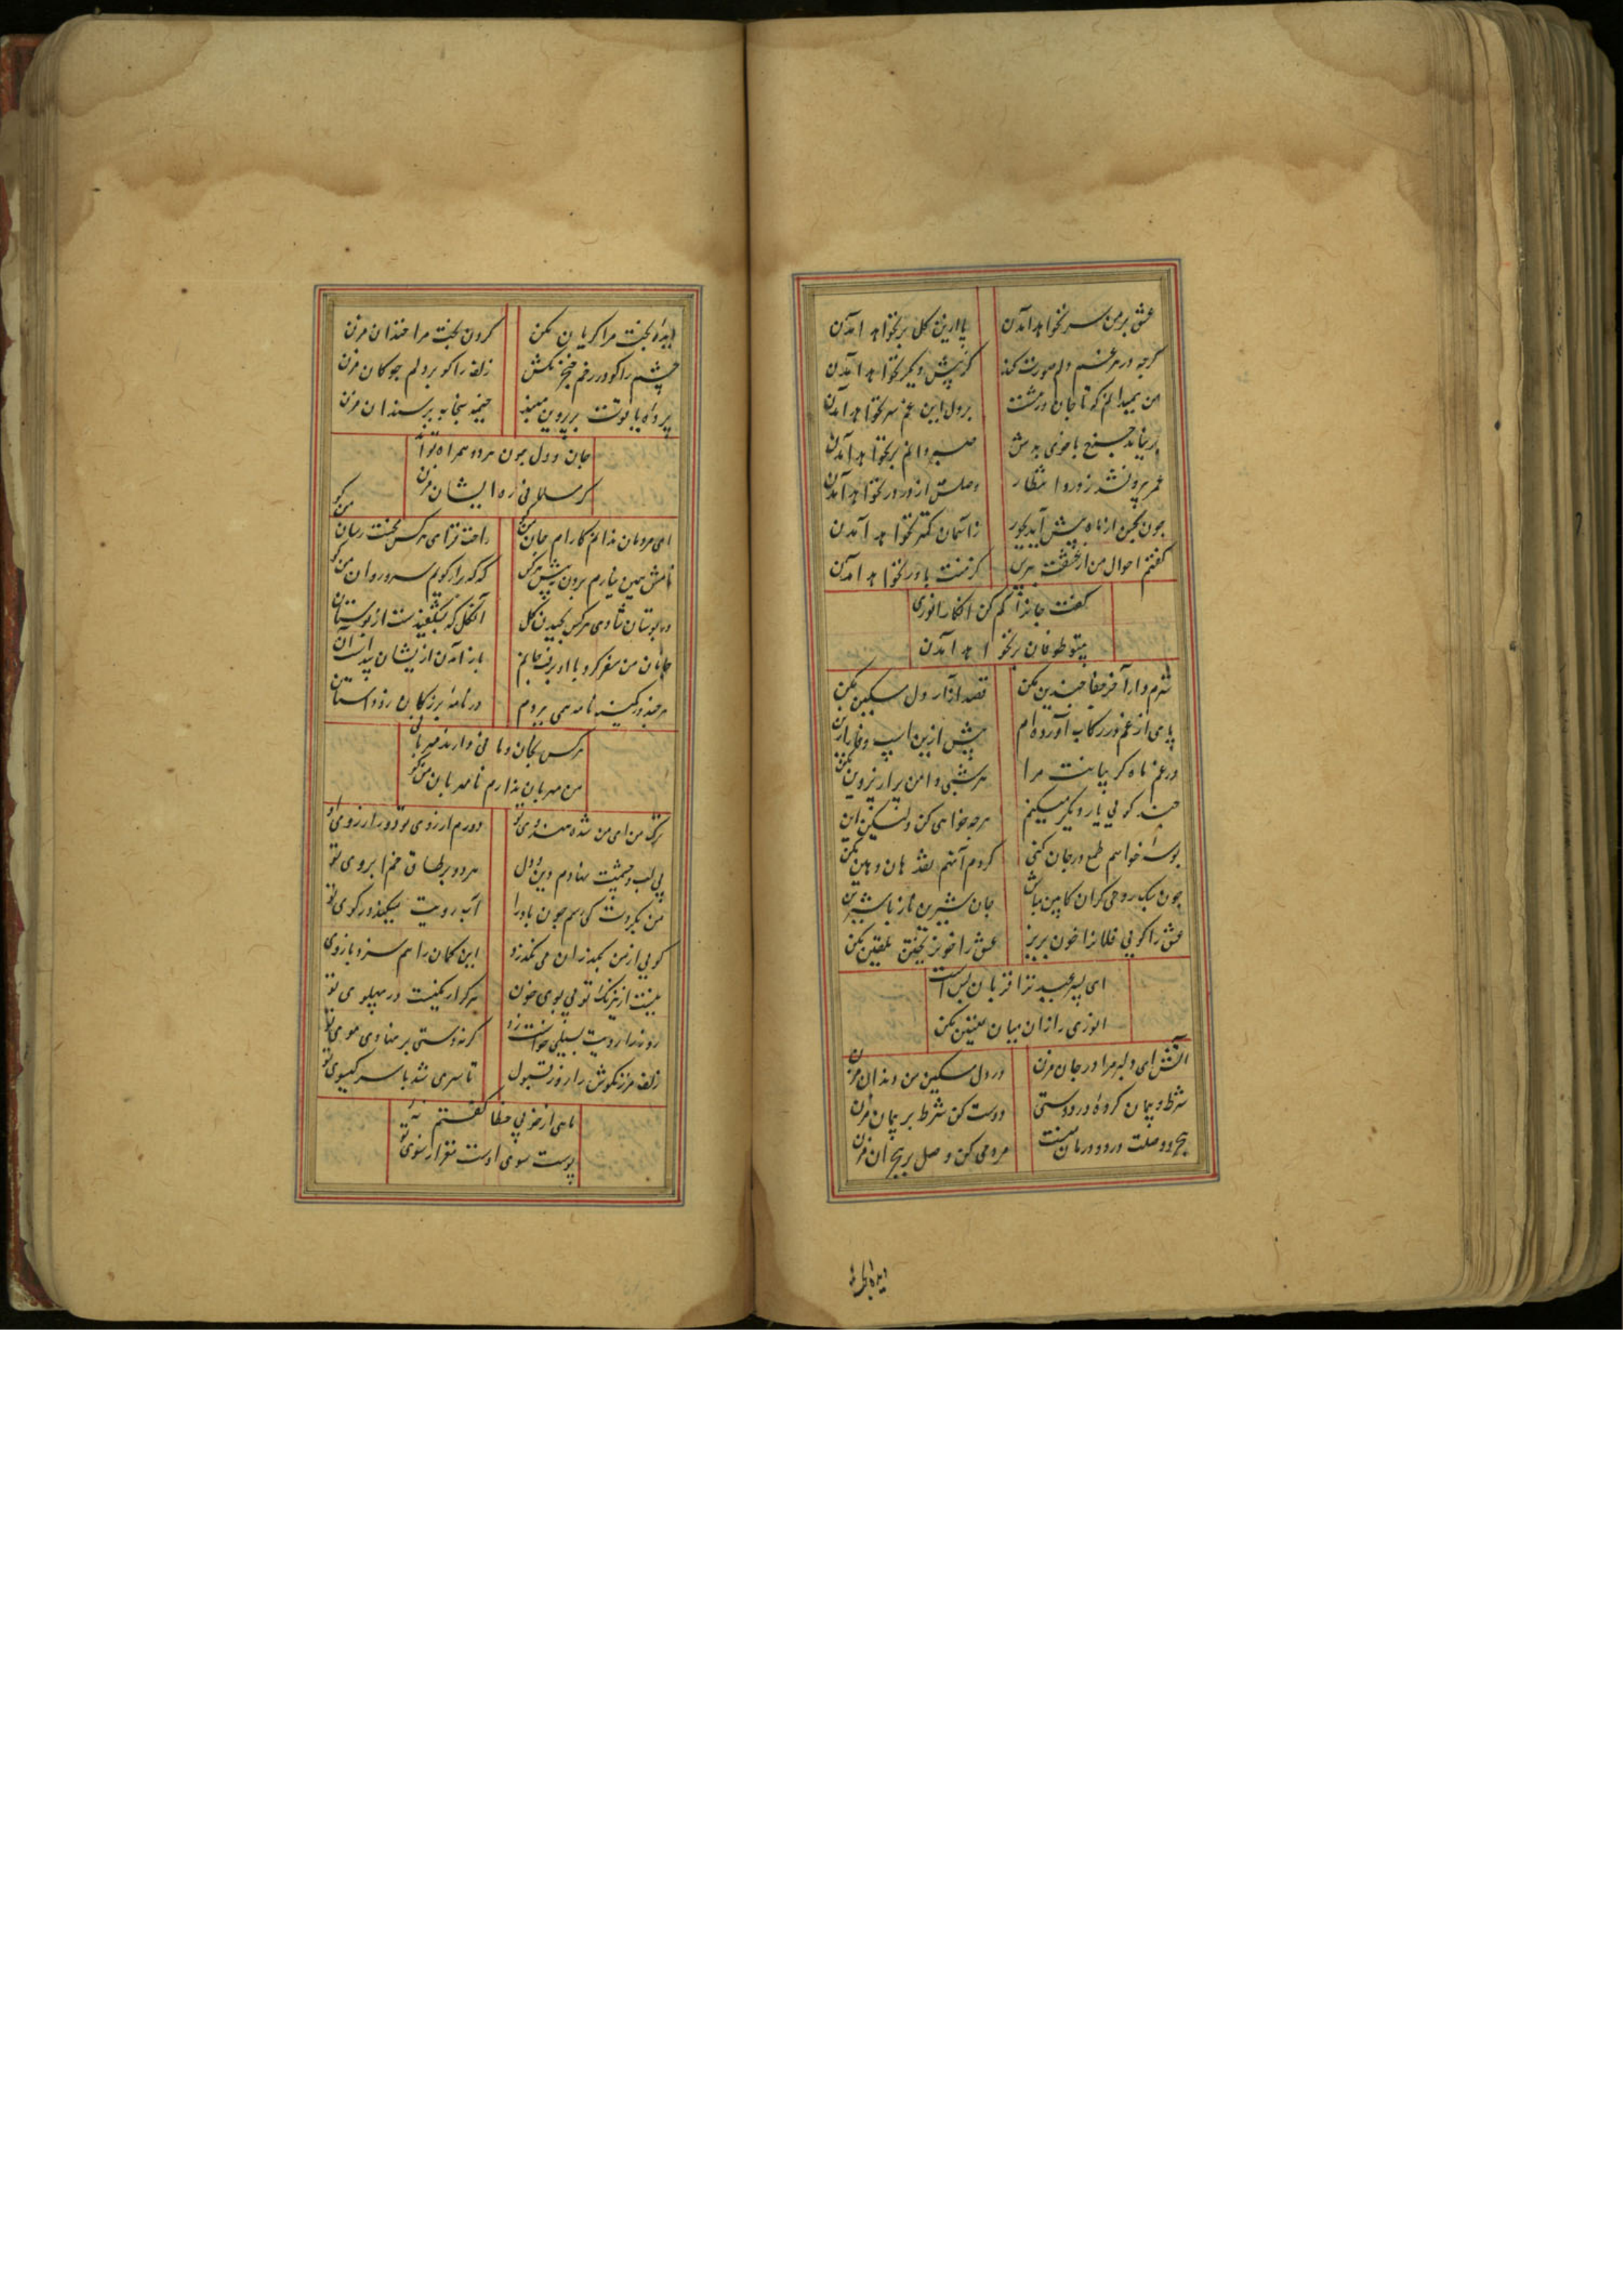 عشق بر من سر نخواهد آمدن
پا ازین گل بر نخواهد آمدن
گرچه در هر غم دلم صورت کند
کز پیش دیگر نخواهد آمدن
من همیدانم که تا جان در منست
بر دل این غم سر نخواهد آمدن
بر نیاید چرخ با خوی بدش
صبر دانم بر نخواهد آمدن
عمر بیرون شد ز در وا انتظار
وصلت از در در نخواهد آمدن
چون بحسن از ماه بیش آید بجور
ز آسمان کمتر نخواهد آمدن
گفتم احوال من از عشقت ببین
گر منت باور نخواهد آمدن
گفت جانا کم کن انکار انوری
بیتو طوفان بر نخواهد آمدن
شرم دار آخر جفا چندین مکن
قصد آزار دل مسکین مکن
پای از غم در رکاب آورده ام
بیش ازین اسپ جفا را زین مکن
در غم ماه گریبانت مرا
هر شبی دامن پر از پروین مکن
چند گویی یار دیگر میکنم
هرچه خواهی کن ولیکن این مکن
بوسه خواهم طمع در جان کنی
کردم آنهم نقد هان و هین مکن
چون سبک روحی گران کابین مباش
جان شیرین ناز با شیرین
عشق را گویی فلانرا خون بریز
عشق را خون ریختن تلقین مکن
ای پسر عید ترا قربان بس است
انوری را زان میان تعیین مکن
آتش ای دلبر مرا در جان مزن
در دل مسکین من دندان مزن
شرط و پیمان کرده در دوستی
دوست کن شرط بر پیمان مزن
هجر و وصلت درد و درمان منست
مردمی کن وصل بر هجران مزن
ایدها بخت
دیده بخت مرا گریان مکن
گردن بخت مرا خندان مزن
چشم را گو در رخم خنجر مکش
زلف را گو بر دلم چوگان مزن
پرده یاقوت بر پروین مبند
خیمه بیخانه بر سندان مزن
جان و دل چون هر دو همراه تواند
کر مسلمانی ره ایشان مزن
ای مردمان ندانم کارام جان من کو
راحت فزای هر کس محنت رسان من کو
نامش همین نیارم بردن بپیش هر کس
گه گه راز گویم سرو روان من کو
در بوستان شادی هر کس بچیدن گل
آنگل که نشگفیدست از بوستان من کو
جانان من سفر کرد با او برفت جانم
باز آمدن ازیشان پیداست آن من کو
هرچند در کمینه نامه همی نیرزم
در نامه بزرگان زو داستان من کو
هر کس بخان و مانی دارند مهربانی
من مهربان ندارم نامهربان من کو
ترک من ای من شده هندوی تو
دورم از روی تو دور از روی تو
بی لب و چشمت نهادم دین و دل
هر دو بر طاق خم ابروی تو
من بگردت کی رسم چون باد را
آب رویت میکند در کوی تو
گویی از من بگذران می نگذرد
این کمان را هم سزد بازوی تو
نیست از نیرنگ تو بی بوی خون
هر کرا رنگیست در پهلوی تو
روز را رویت بسیلی خواست زد
گرنه دستی بر نهادی موی تو
زلف مرزنگوش را روز قبول
تا سری شد با سر گیسوی تو
ماهی از خوبی خطا گفتم نه
پوست سوی اوست مغز از سوی تو